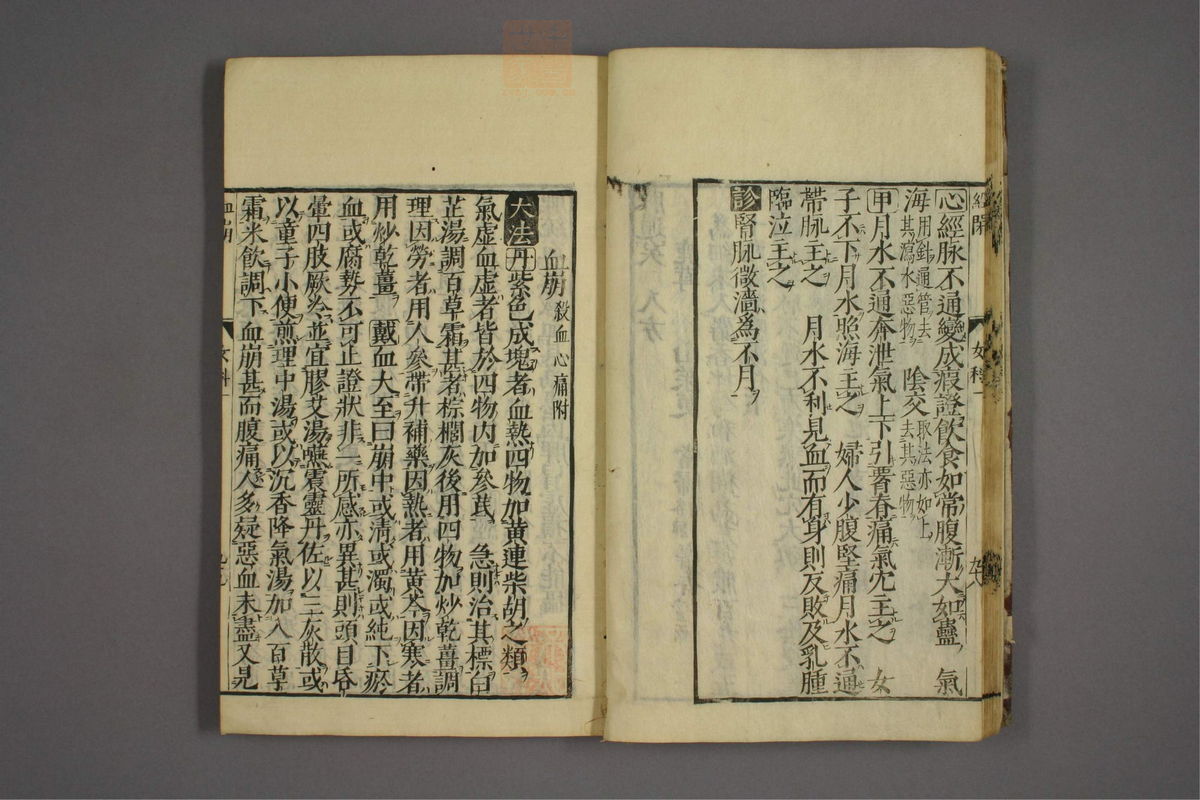 心經脉不通變成瘕證飲食如常腹漸大如蠱 氣
海用針通管去其瀉水惡物 陰交取法亦如上去其惡物
甲月水不通奔泄氣上下引腰脊痛氣穴主之 女
子不下月水照海主之 婦人少腹堅痛月水不通
帶脉主之 月水不利見血而有身則反敗及乳腫
臨泣主之
診腎脉微濇爲不月
血崩殺血心痛附
大法丹紫色成塊者血熱四物加黄連柴胡之類
氣虛血虛者皆於四物内加參芪 急則治其標白
芷湯調百草霜甚者棕櫚灰後用四物加炒乾薑調
理因勞者用人參帶升補藥因熱者用黄芩因寒者
用炒乾薑 戴血大至曰崩中或淸或濁或純下瘀
血或腐勢不可止證狀非一所感亦異甚則頭目昏
暈四肢厥冷並宜膠艾湯嚥震靈丹佐以三灰散或
以童子小便煎理中湯或以沉香降氣湯加入百草
霜米飲調下血崩甚而腹痛人多疑惡血未盡又見
血崩
女科一
經閉
女科一